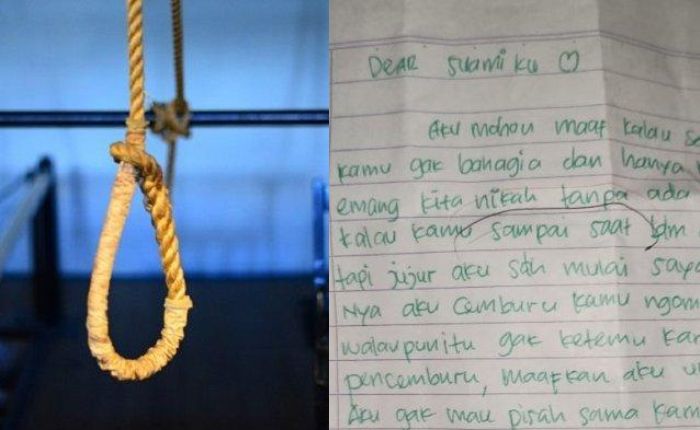 DEAR Suami ku ♡
Aku mohon maaf kalau
kamu gak bahagia dan hanya
emang kita nikah tanpa ada
kalau kamu sampai saat
tapi jujur aku sdh mulai
Nya aku cemburu kamu
walaupun itu gak ketemu
pencemburu, maafkan aku
Aku gak mau pisah sama